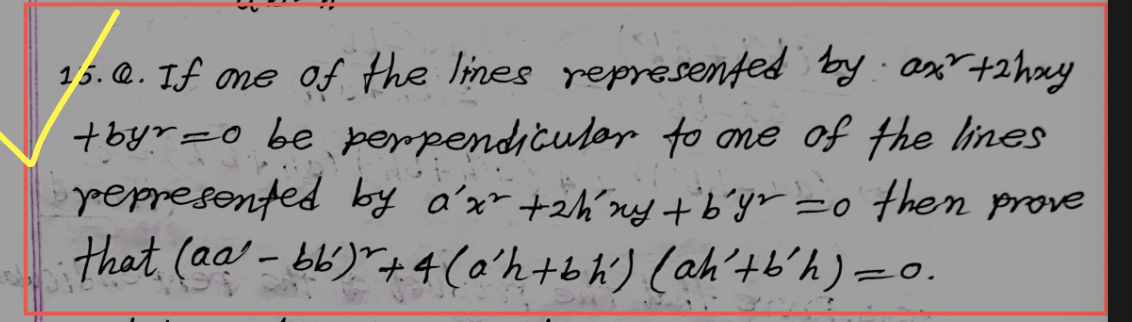 15. Q. If one of the lines represented by ax²+2hxy
+by²=0 be perpendicular to one of the lines
represented by a'x²+2h'xy+b'y²=0 then prove
that (aa'-bb')²+4(a'h+bh')(ah'+b'h)=0.